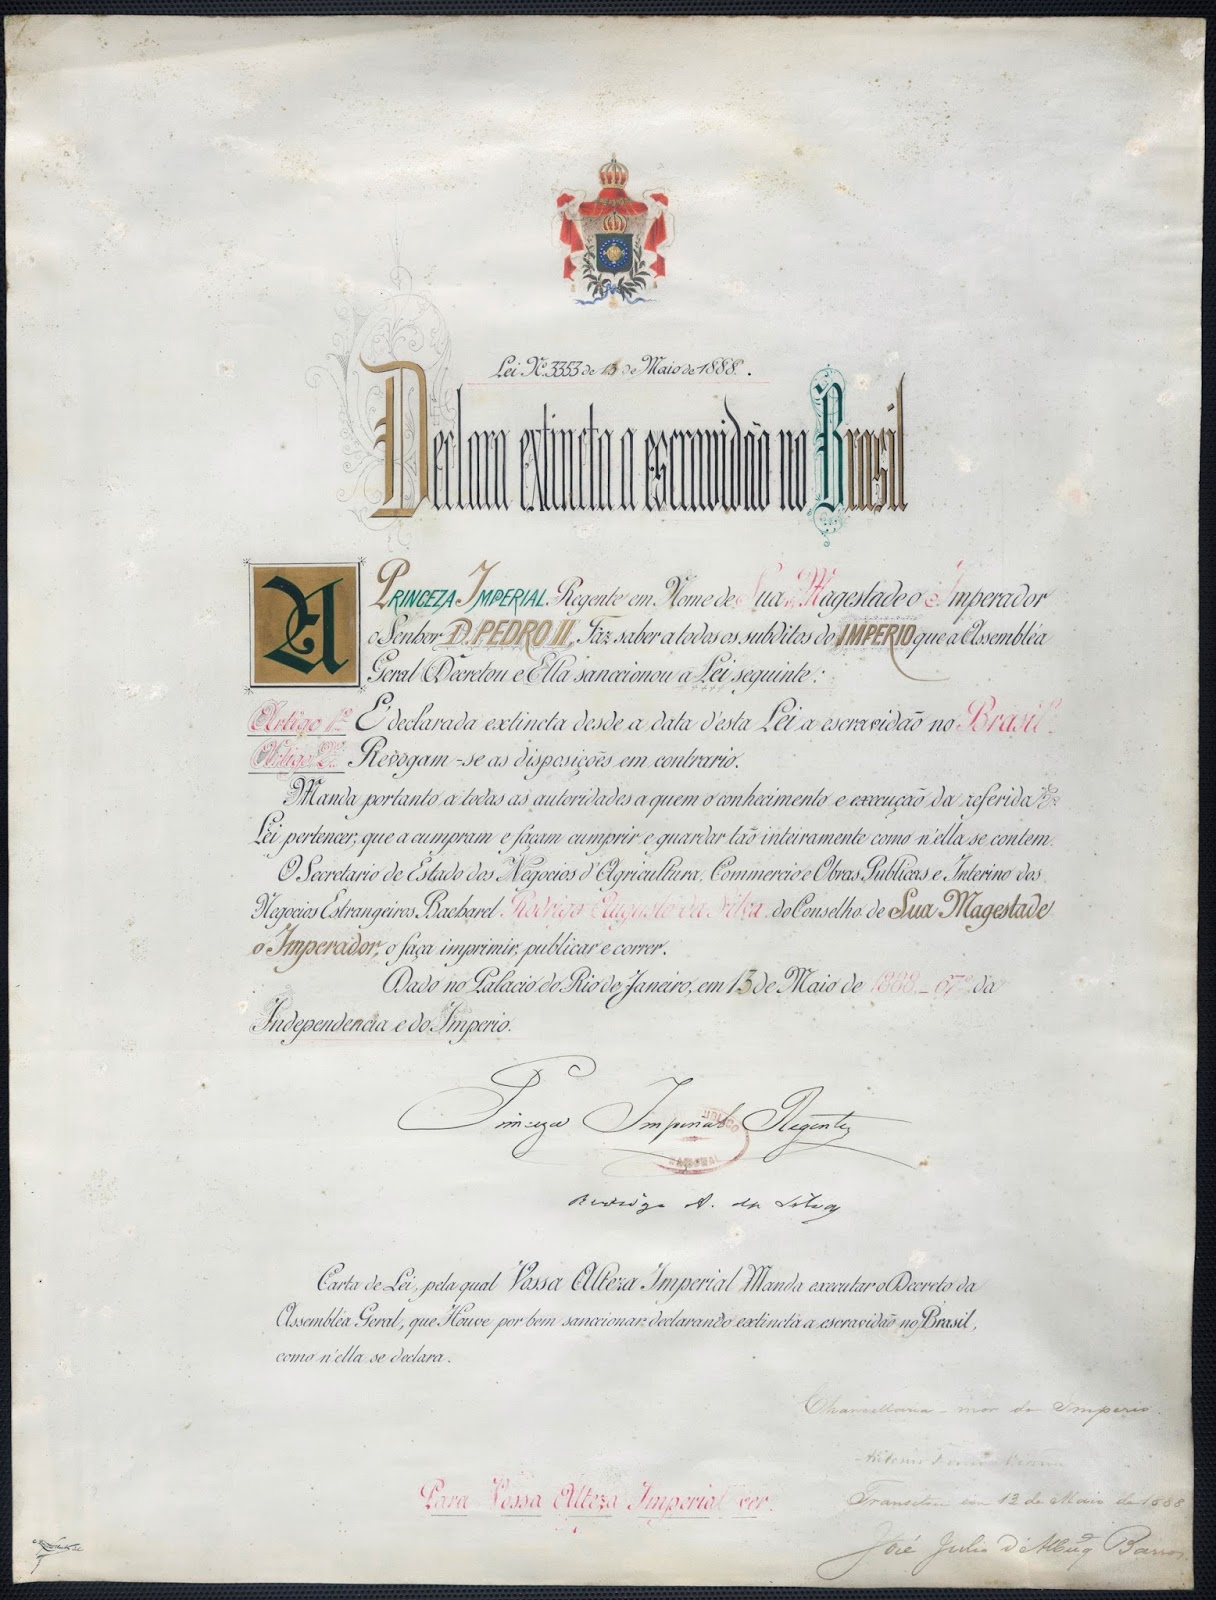 Lei Nº 3353 de 13 de Maio de 1888.
Declara extincta a escravidão no Brasil
A PRINCEZA IMPERIAL Regente em Nome de Sua Magestade o Imperador
o Senhor D. PEDRO II, Faz saber a todos os subditos do IMPERIO que a Assembléa
Geral Decretou e Ella sanccionou a Lei seguinte:
Artigo 1º É declarada extincta desde a data d'esta Lei a escravidão no Brasil.
Artigo 2º Revogam-se as disposições em contrario.
Manda portanto a todas as autoridades a quem o conhecimento e execução da referida
Lei pertencer, que a cumpram e façam cumprir e guardar tão inteiramente como n'ella se contem.
O Secretario de Estado dos Negocios d'Agricultura, Commercio e Obras Publicas e Interino dos
Negocios Estrangeiros Bacharel Rodrigo Augusto da Silva do Conselho de Sua Magestade
o Imperador, o faça imprimir, publicar e correr.
Dado no Palacio do Rio de Janeiro, em 13 de Maio de 1888 - 67º da
Independencia e do Imperio.
Princeza Imperial Regente
Rodrigo A. da Silva
Carta de Lei, pela qual Vossa Alteza Imperial Manda executar o Decreto da
Assembléa Geral, que Houve por bem sanccionar declarando extincta a escravidão no Brasil,
como n'ella se declara.
Chancellaria-mor do Imperio
Para Vossa Alteza Imperial ver.
Transitou em 13 de Maio de 1888
José Julio d'Albuqº Barros